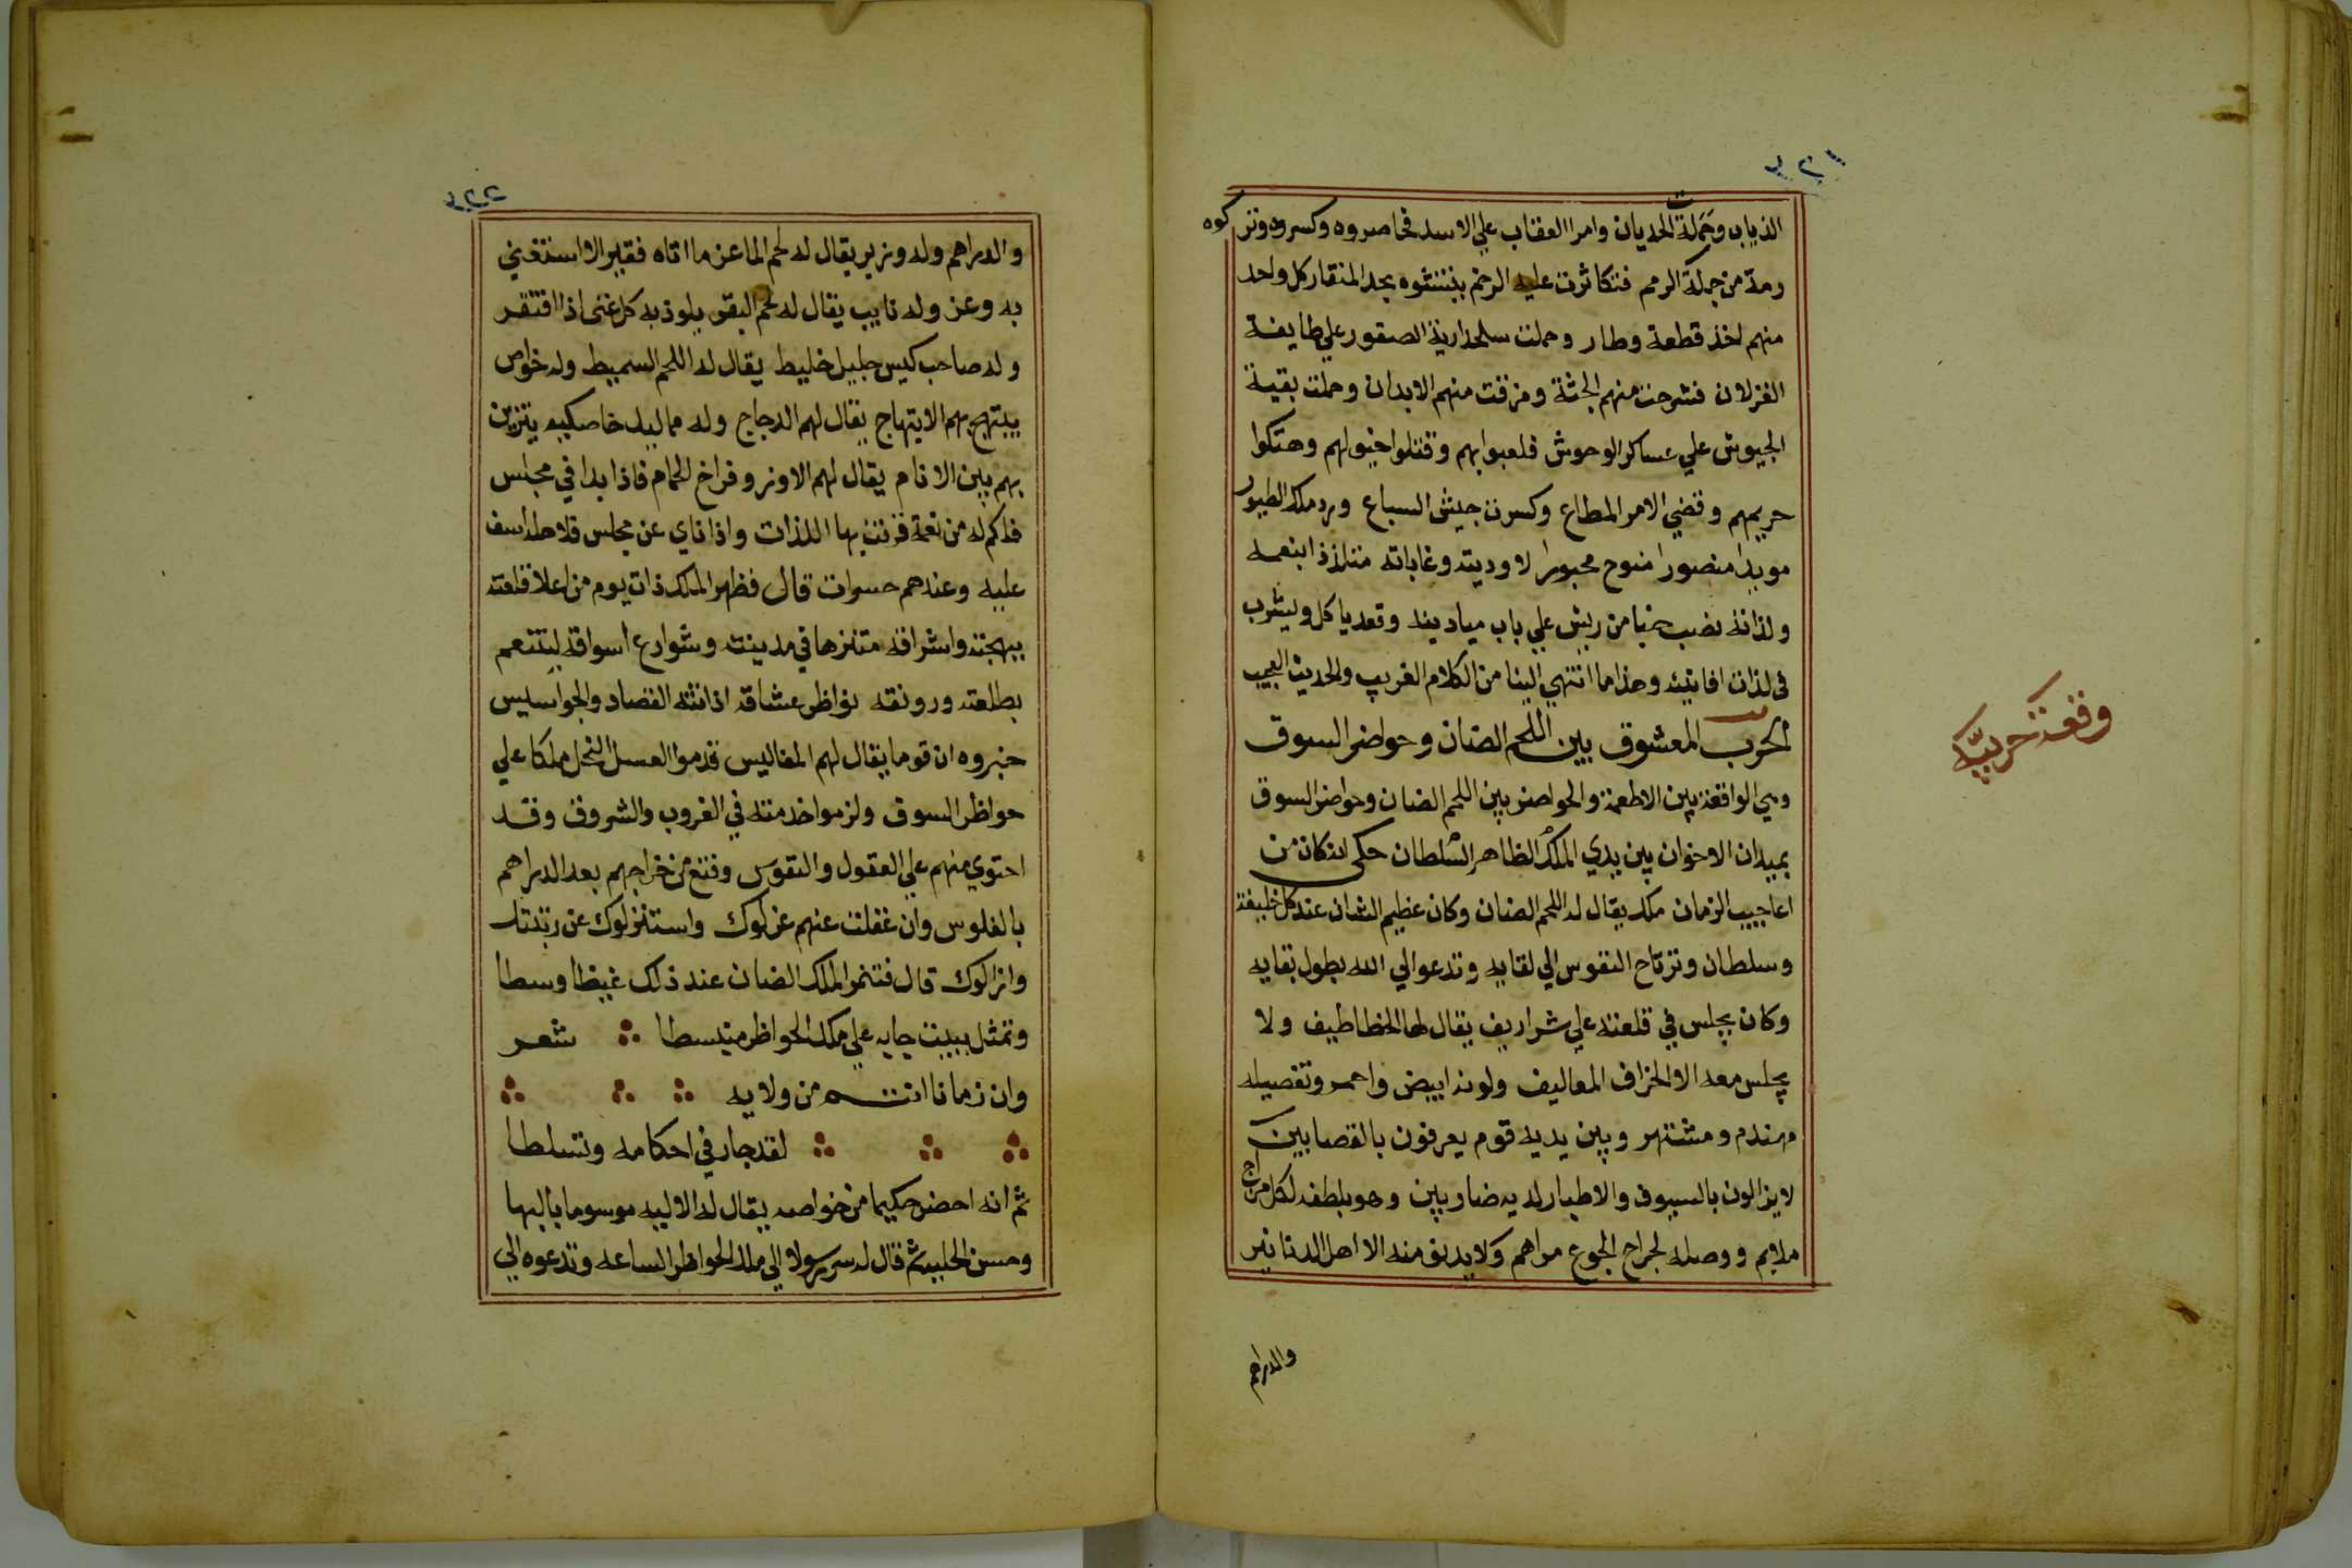 ٢٢١
الذياب وحملت الحديان وامر العقاب علي الاسد فحاصروه وكسروه وتركوه
رمة من جملة الرمم فتكاثرت عليه الرخم ينتشوه بحد المنقار كل واحد
منهم اخذ قطعة وطار وحملت سلحدارية الصقور علي طايفة
الغزلان فشرحت منهم الجثة ومزقت منهم الابدان وحملت بقية
الجيوش علي عساكر الوحوش فلعبوا بهم وقتلوا خيولهم وهتكوا
حريمهم وقضي الامر المطاع وكسرت جيش السباع ورد ملك الطيور
مويدا منصورا متوح محبورا لاوديته وغاباته متلذذا بنعمه
ولذاته نصب خيبا من ريش علي باب ميادينه وقعد ياكل ويشرب
في لذات افانينه وهذا ما انتهي الينا من الكلام الغريب والحديث العجيب
الحرب المعشوق بين اللحم الضان وحواضر السوق
وهي الواقعة بين الاطعمة والحواضر بين اللحم الضان وحواضر السوق
بميدان الاخوان بين يدي الملك الظاهر السلطان حكي انه كان من
اعاجيب الزمان ملك يقال له اللحم الضان وكان عظيم الشان عند كل خليفة
وسلطان وترتاح النفوس الي لقايه وتدعو الي الله بطول بقايه
وكان يجلس في قلعته علي شراريف يقال لها الخطاطيف ولا
يجلس معه الا الخراف المعاليف ولونه ابيض واحمر وتفصيله
مهندم ومشتهر وبين يديه قوم يعرفون بالقصابين
لا يزالون بالسيوف والاطبار لديه ضاربين وهو بلطفه لكل مزاج
ملايم ووصله لجراح الجوع مراهم ولا يدنو منه الا اهل الدنانير
والدراهم
وقعة حربية
٢٢٢
والدراهم وله وزير يقال له لحم الماعز ما اتاه فقير الا استغني
به وعز وله نايب يقال له لحم البقر يلوذ به كل غني اذا افتقر
وله صاحب كيس جليل خليط يقال له اللحم السميط وله خواص
يبتهج بهم الابتهاج يقال لهم الدجاج وله مماليك خاصكيه يتزين
بهم بين الانام يقال لهم الاوز وفراخ الحمام فاذا بدا في مجلس
فلكم له من نعمة قرنت بها اللذات واذا ناي عن مجلس فلاهله اسف
عليه وعندهم حسرات قال فظهر الملك ذات يوم من اعلا قلعته
ببهجته واشرافه متنزها في مدينته وشوارع اسواقه ليتنعم
بطلعته ورونقه نواظر عشاقه اذ اتته القصاد والجواسيس
خبروه ان قوما يقال لهم المفاليس قدموا العسل النحل ملكا علي
حواظر السوق ولزموا خدمته في الغروب والشروق وقد
احتوي منهم علي العقول والنفوس وقنع من خراجهم بعد الدراهم
بالفلوس وان غفلت عنهم عزلوك واستنزلوك عن رتبتك
وازالوك قال فتنمر الملك الضان عند ذلك غيظا وسطا
وتمثل ببيت جايه علي ملك الحواظر متبسطا شعر
وان زمانا انتم من ولايه
لقد جار في احكامه وتسلطا
ثم انه احضر حكيما من خواصه يقال له الاليه موسوما بالبها
وحسن الحليه ثم قال له سر رسولا الي ملك الحواظر الساعه وتدعوه الي